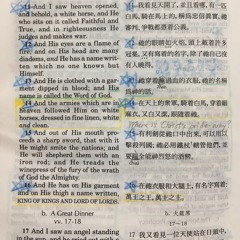 11 And I saw heaven opened,
and behold, a white horse, and He
who sits on it called Faithful and
True, and in righteousness He
judges and makes war.
12 And His eyes are a flame of
fire; and on His head are many
diadems, and He has a name writ-
ten which no one knows but
Himself.
13 And He is clothed with a gar-
ment dipped in blood; and His
name is called the Word of God.
14 And the armies which are in
heaven followed Him on white
horses, dressed in fine linen, white
and clean.
15 And out of His mouth pro-
ceeds a sharp sword, that with it
He might smite the nations; and
He will shepherd them with an
iron rod; and He treads the
winepress of the fury of the wrath
of God the Almighty.
16 And He has on His garment
and on His thigh a name written,
KING OF KINGS AND LORD OF LORDS.
b. A Great Dinner
vv. 17-18
17 And I saw an angel standing
11 我又看見天開了，並且看哪，有一匹
白馬，騎在馬上的，稱為忠信真實，祂
審判、爭戰都憑著公義。
12 祂的眼睛如火焰，頭上戴著許多
冠冕，又有寫著的名字，除了祂自己，
沒有人知道。
13 祂穿著浸過血的衣服，祂的名稱
為神的話。
14 在天上的眾軍，騎著白馬，穿著細
麻衣，又白又潔，跟隨著祂。
15 有利劍從祂口中出來，可以用以
擊殺列國；祂必用鐵杖轄管他們，並
踹全能神烈怒的酒醡。
16 在祂衣服和大腿上，有名字寫著：
萬王之王，萬主之主。
b. 大筵席
17～18
17 我又看見一位天使站在日頭中，